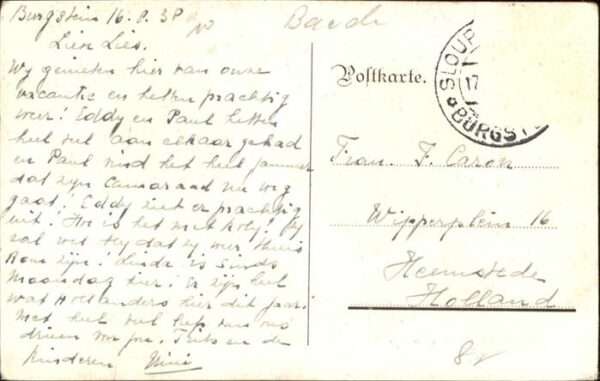 Burgstein 16.8.38
Lieve Lies.
Wy genieten hier van onze
vacantie en hebben prachtig
weer! Eddy en Paul hebben
heel veel aan elkaar gehad
en Paul vind het heel jammer
dat zijn Camaraad nu weg
gaat! Eddy ziet er prachtig
uit! Hoe is het met
zal wel bly dat zy weer thuis
zijn! is sinds
Maandag hier! Er zijn heel
wat Hollanders hier dit jaar.
Met heel veel liefs van ons
drieen voor jou. Frits en de
kinderen Mimi
Postkarte.
SLOUP
17
BÜRGST
Frau. F. Caron
Wipperplein 16
Heemstede
Holland